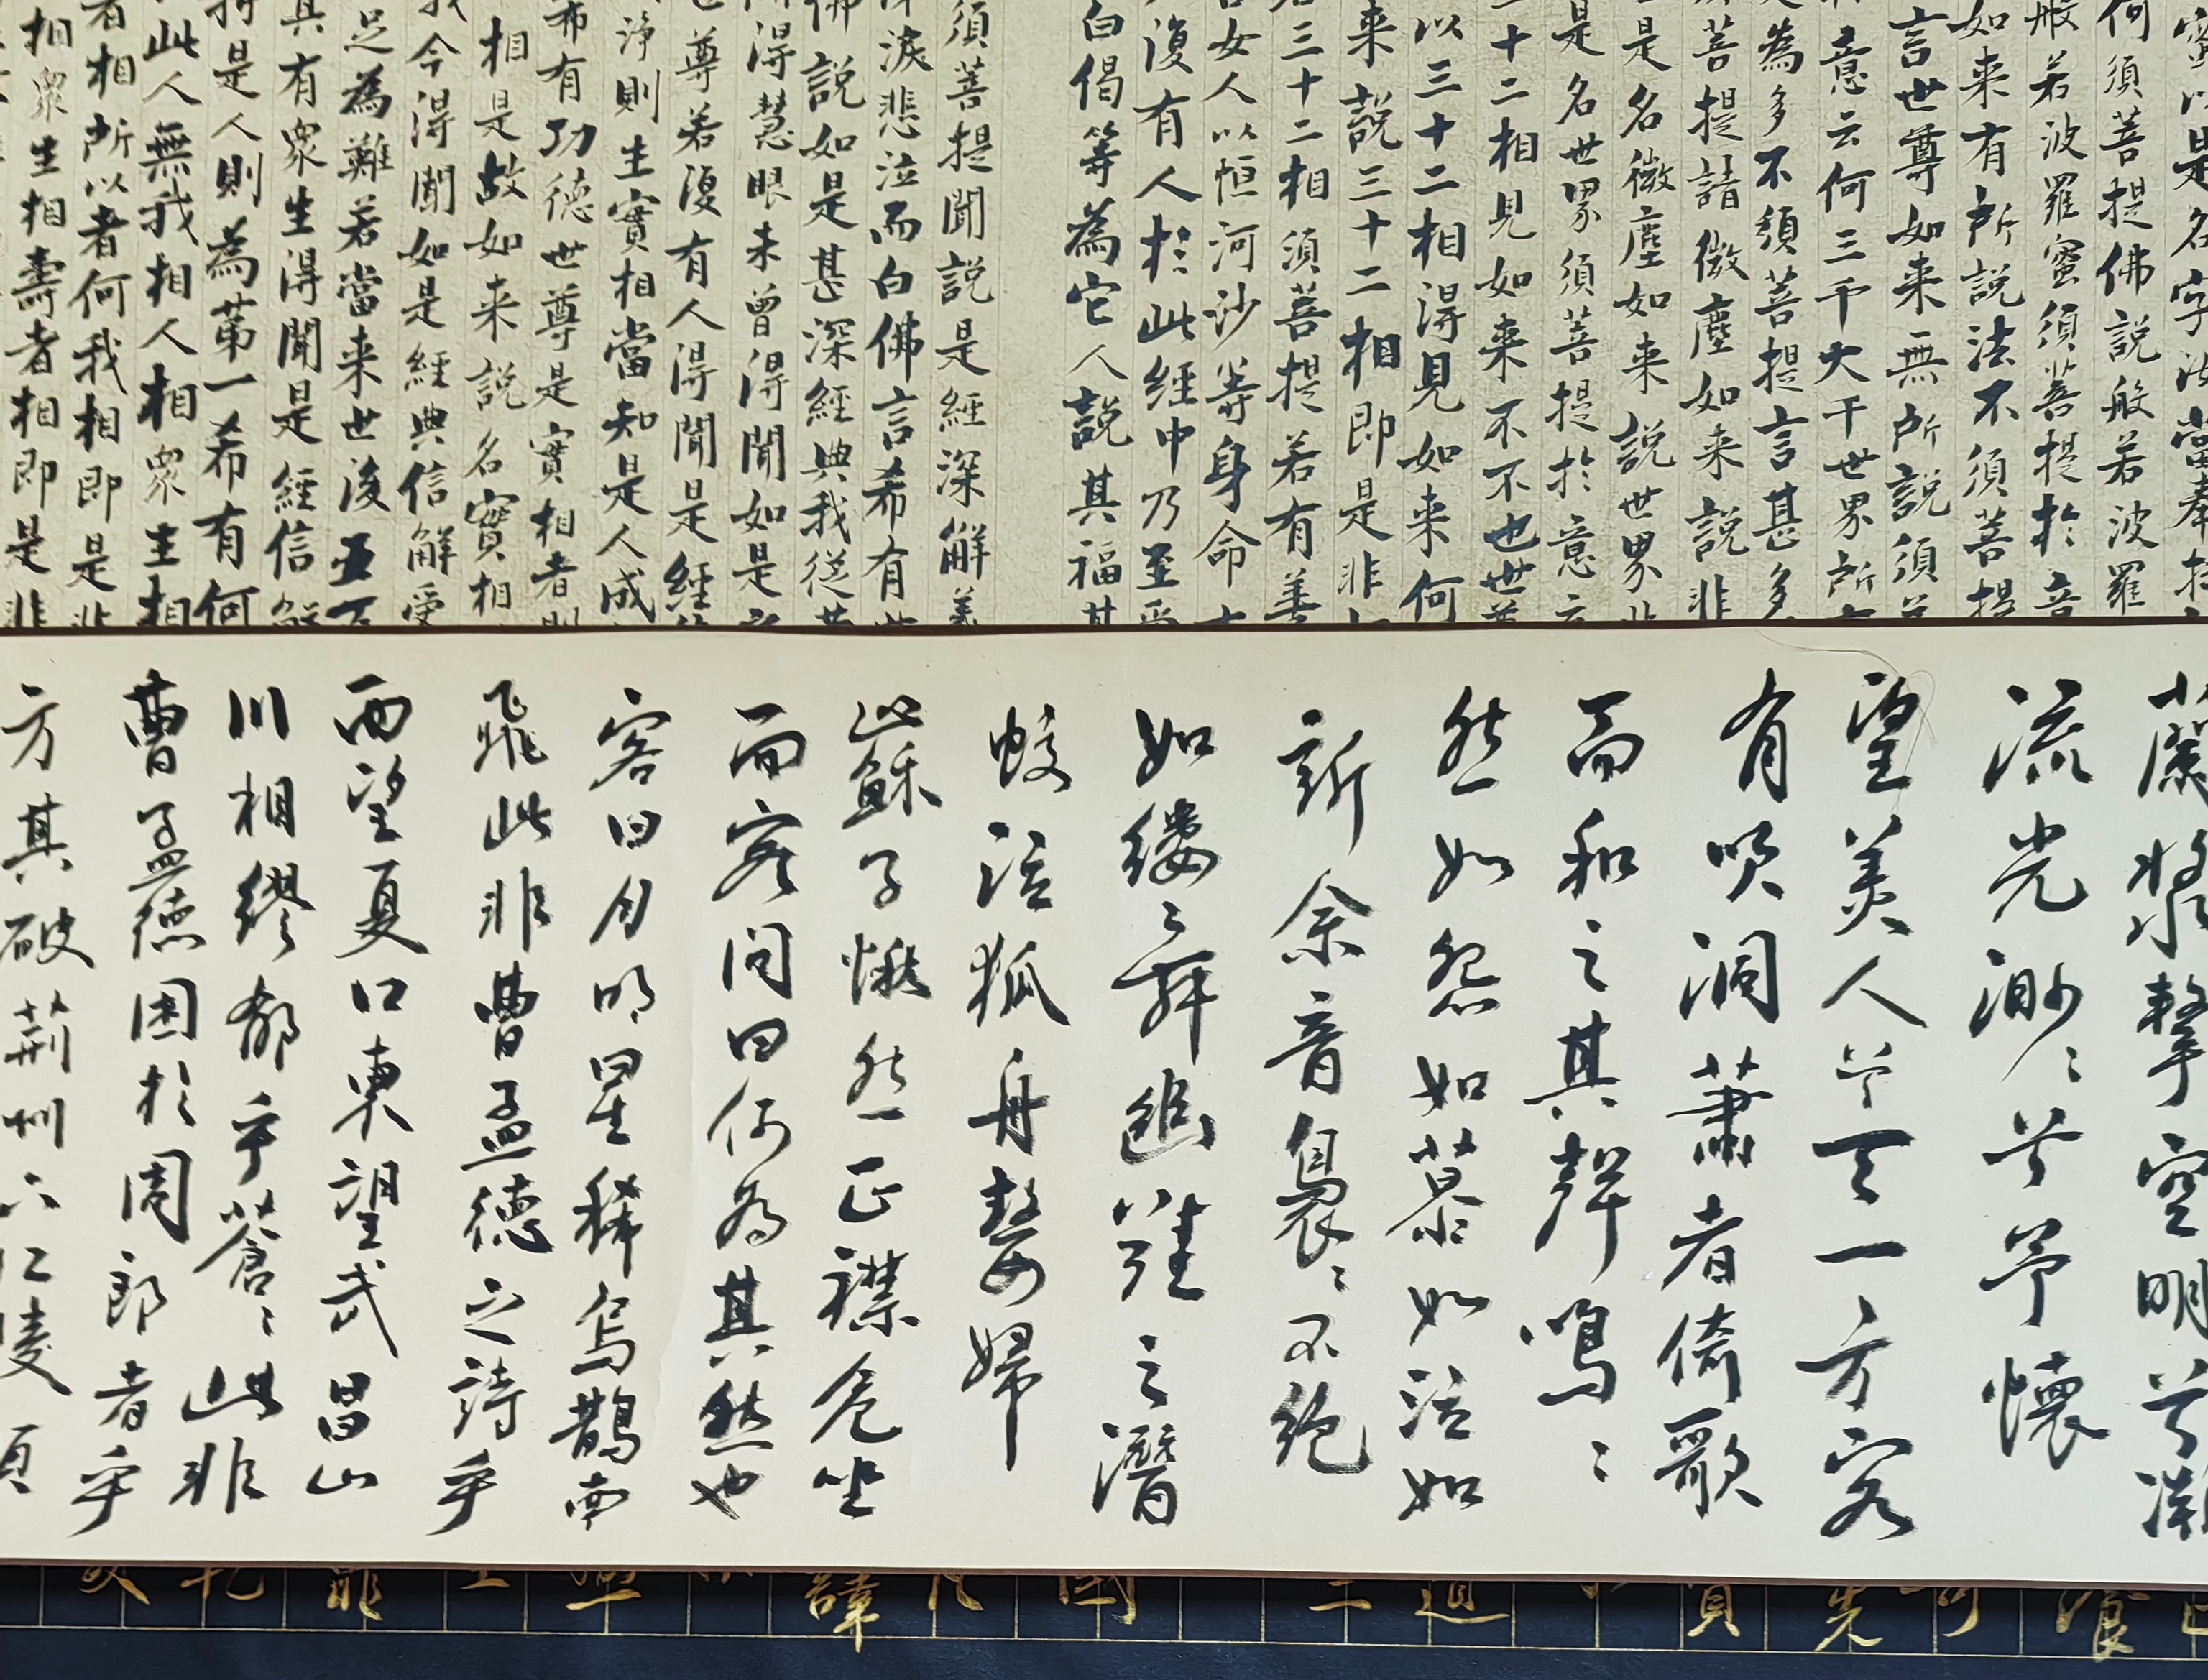 蜜以是名字汝當奉持
何須菩提佛說般若波羅
般若波羅蜜須菩提於意
如来有所說法不須菩提
言世尊如来無所說須菩
意云何三千大千世界所
為多不須菩提言甚多
菩提諸微塵如来說非
是名微塵如来說世界非
是名世界須菩提於意云
十二相見如来不不也世尊
以三十二相得見如来何
来說三十二相即是非
三十二相須菩提若有善
女人以恒河沙等身命
復有人於此經中乃至受
白偈等為它人說其福甚
須菩提聞說是經深解義
淚悲泣而白佛言希有
佛說如是甚深經典我從昔
得慧眼未曾得聞如是
尊若復有人得聞是經
淨則生實相當知是人成
希有功德世尊是實相者則
相是故如来說名實相
我今得聞如是經典信解受
足為難若當来世後五百
其有衆生得聞是經信解
是人則為第一希有何
此人無我相人相衆生相
者相所以者何我相即是非
相衆生相壽者相即是非
蘭槳擊空明兮溯
流光渺〻兮予懷
望美人兮天一方客
有吹洞蕭者倚歌
而和之其聲嗚〻
然如怨如慕如泣如
訴余音裊〻不絕
如縷〻舞幽壑之潛
蛟泣孤舟嫠婦
蘇子愀然正襟危坐
而客問曰何為其然也
客曰月明星稀烏鵲南
飛此非曹孟德之詩乎
西望夏口東望武昌山
川相繆郁乎蒼〻此非
曹孟德困於周郎者乎
方其破荊州下江陵順